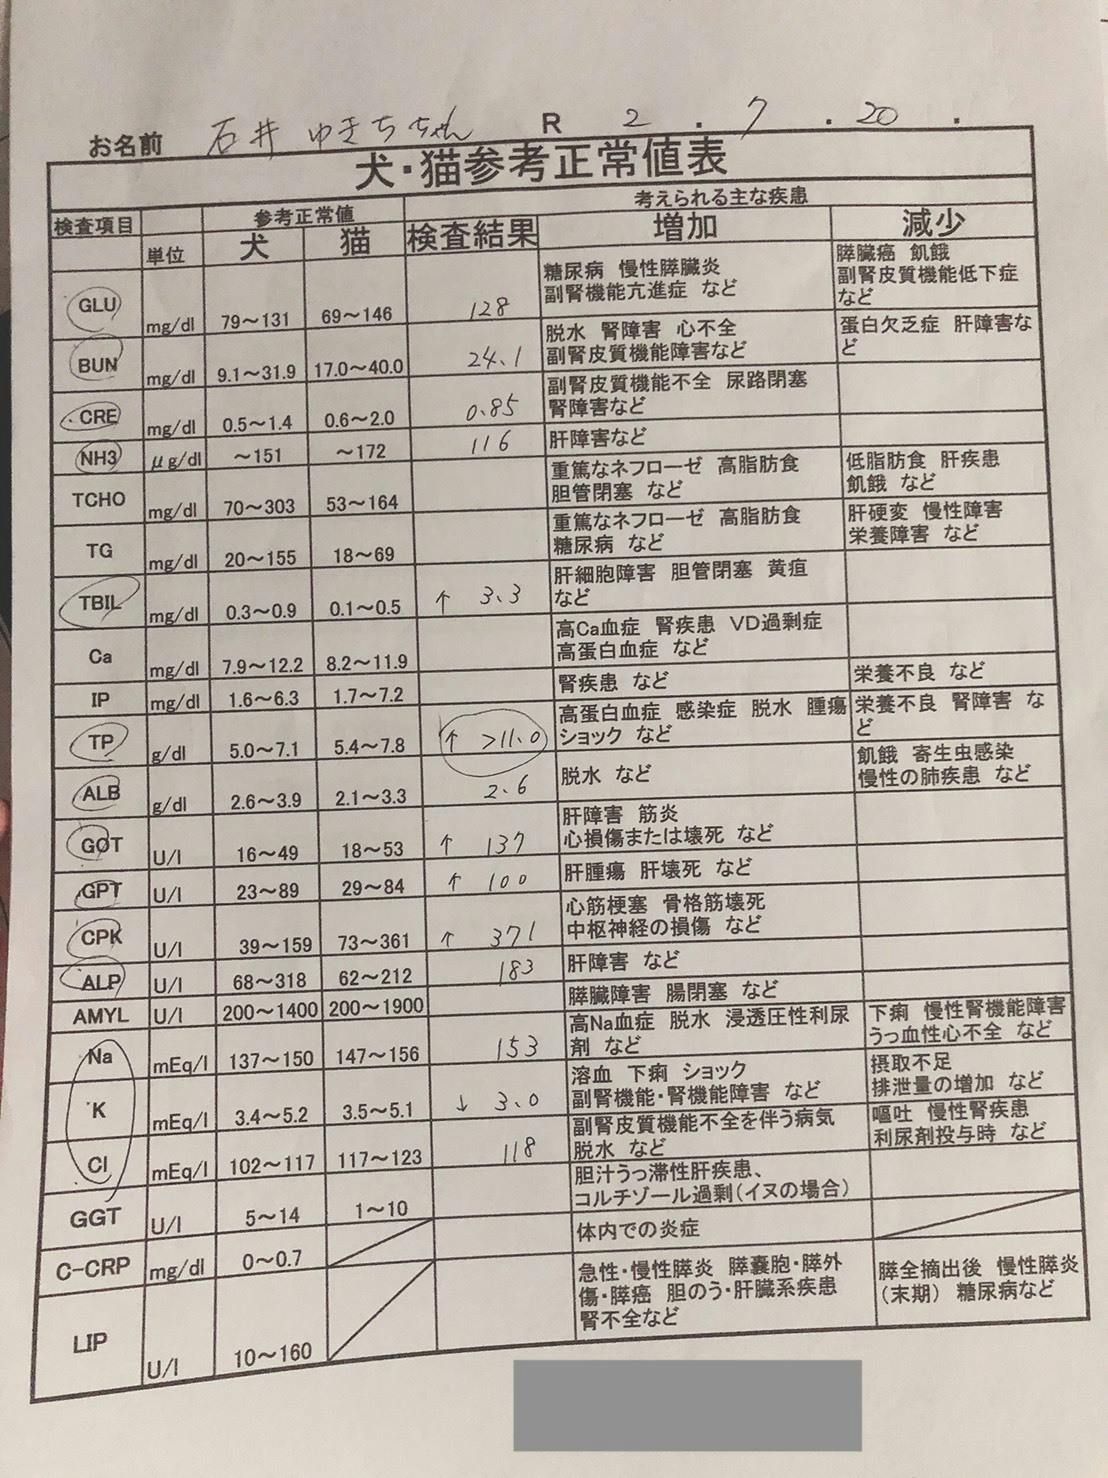 お名前 石井 ゆきちちゃん R 2 . 7 . 20 .
犬・猫参考正常値表
検査項目 単位 参考正常値 検査結果 考えられる主な疾患
犬 猫 増加 減少
GLU mg/dl 79～131 69～146 128 糖尿病 慢性膵臓炎 副腎機能亢進症 など 膵臓癌 飢餓 副腎皮質機能低下症 など
BUN mg/dl 9.1～31.9 17.0～40.0 24.1 脱水 腎障害 心不全 副腎皮質機能障害など 蛋白欠乏症 肝障害など
CRE mg/dl 0.5～1.4 0.6～2.0 0.85 副腎皮質機能不全 尿路閉塞 腎障害など
NH3 μg/dl ～151 ～172 116 肝障害など
TCHO mg/dl 70～303 53～164 重篤なネフローゼ 高脂肪食 胆管閉塞 など 低脂肪食 肝疾患 飢餓 など
TG mg/dl 20～155 18～69 重篤なネフローゼ 高脂肪食 糖尿病 など 肝硬変 慢性障害 栄養障害 など
TBIL mg/dl 0.3～0.9 0.1～0.5 ↑ 3.3 肝細胞障害 胆管閉塞 黄疸 など
Ca mg/dl 7.9～12.2 8.2～11.9 高Ca血症 腎疾患 VD過剰症 高蛋白血症 など
IP mg/dl 1.6～6.3 1.7～7.2 腎疾患 など 栄養不良 など
TP g/dl 5.0～7.1 5.4～7.8 ↑ >11.0 高蛋白血症 感染症 脱水 腫瘍 ショック など 栄養不良 腎障害 など
ALB g/dl 2.6～3.9 2.1～3.3 2.6 脱水 など 飢餓 寄生虫感染 慢性の肺疾患 など
GOT U/l 16～49 18～53 ↑ 137 肝障害 筋炎 心損傷または壊死 など
GPT U/l 23～89 29～84 ↑ 100 肝腫瘍 肝壊死 など
CPK U/l 39～159 73～361 ↑ 371 心筋梗塞 骨格筋壊死 中枢神経の損傷 など
ALP U/l 68～318 62～212 183 肝障害 など
AMYL U/l 200～1400 200～1900 膵臓障害 腸閉塞 など
Na mEq/l 137～150 147～156 153 高Na血症 脱水 浸透圧性利尿剤 など 下痢 慢性腎機能障害 うっ血性心不全 など
K mEq/l 3.4～5.2 3.5～5.1 ↓ 3.0 溶血 下痢 ショック 副腎機能・腎機能障害 など 摂取不足 排泄量の増加 など
Cl mEq/l 102～117 117～123 118 副腎皮質機能不全を伴う病気 脱水 など 嘔吐 慢性腎疾患 利尿剤投与時 など
GGT U/l 5～14 1～10 胆汁うっ滞性肝疾患、コルチゾール過剰(イヌの場合)
C-CRP mg/dl 0～0.7 体内での炎症
LIP U/l 10～160 急性・慢性膵炎 膵嚢胞・膵外傷・膵癌 胆のう・肝臓系疾患 腎不全など 膵全摘出後 慢性膵炎(末期) 糖尿病など